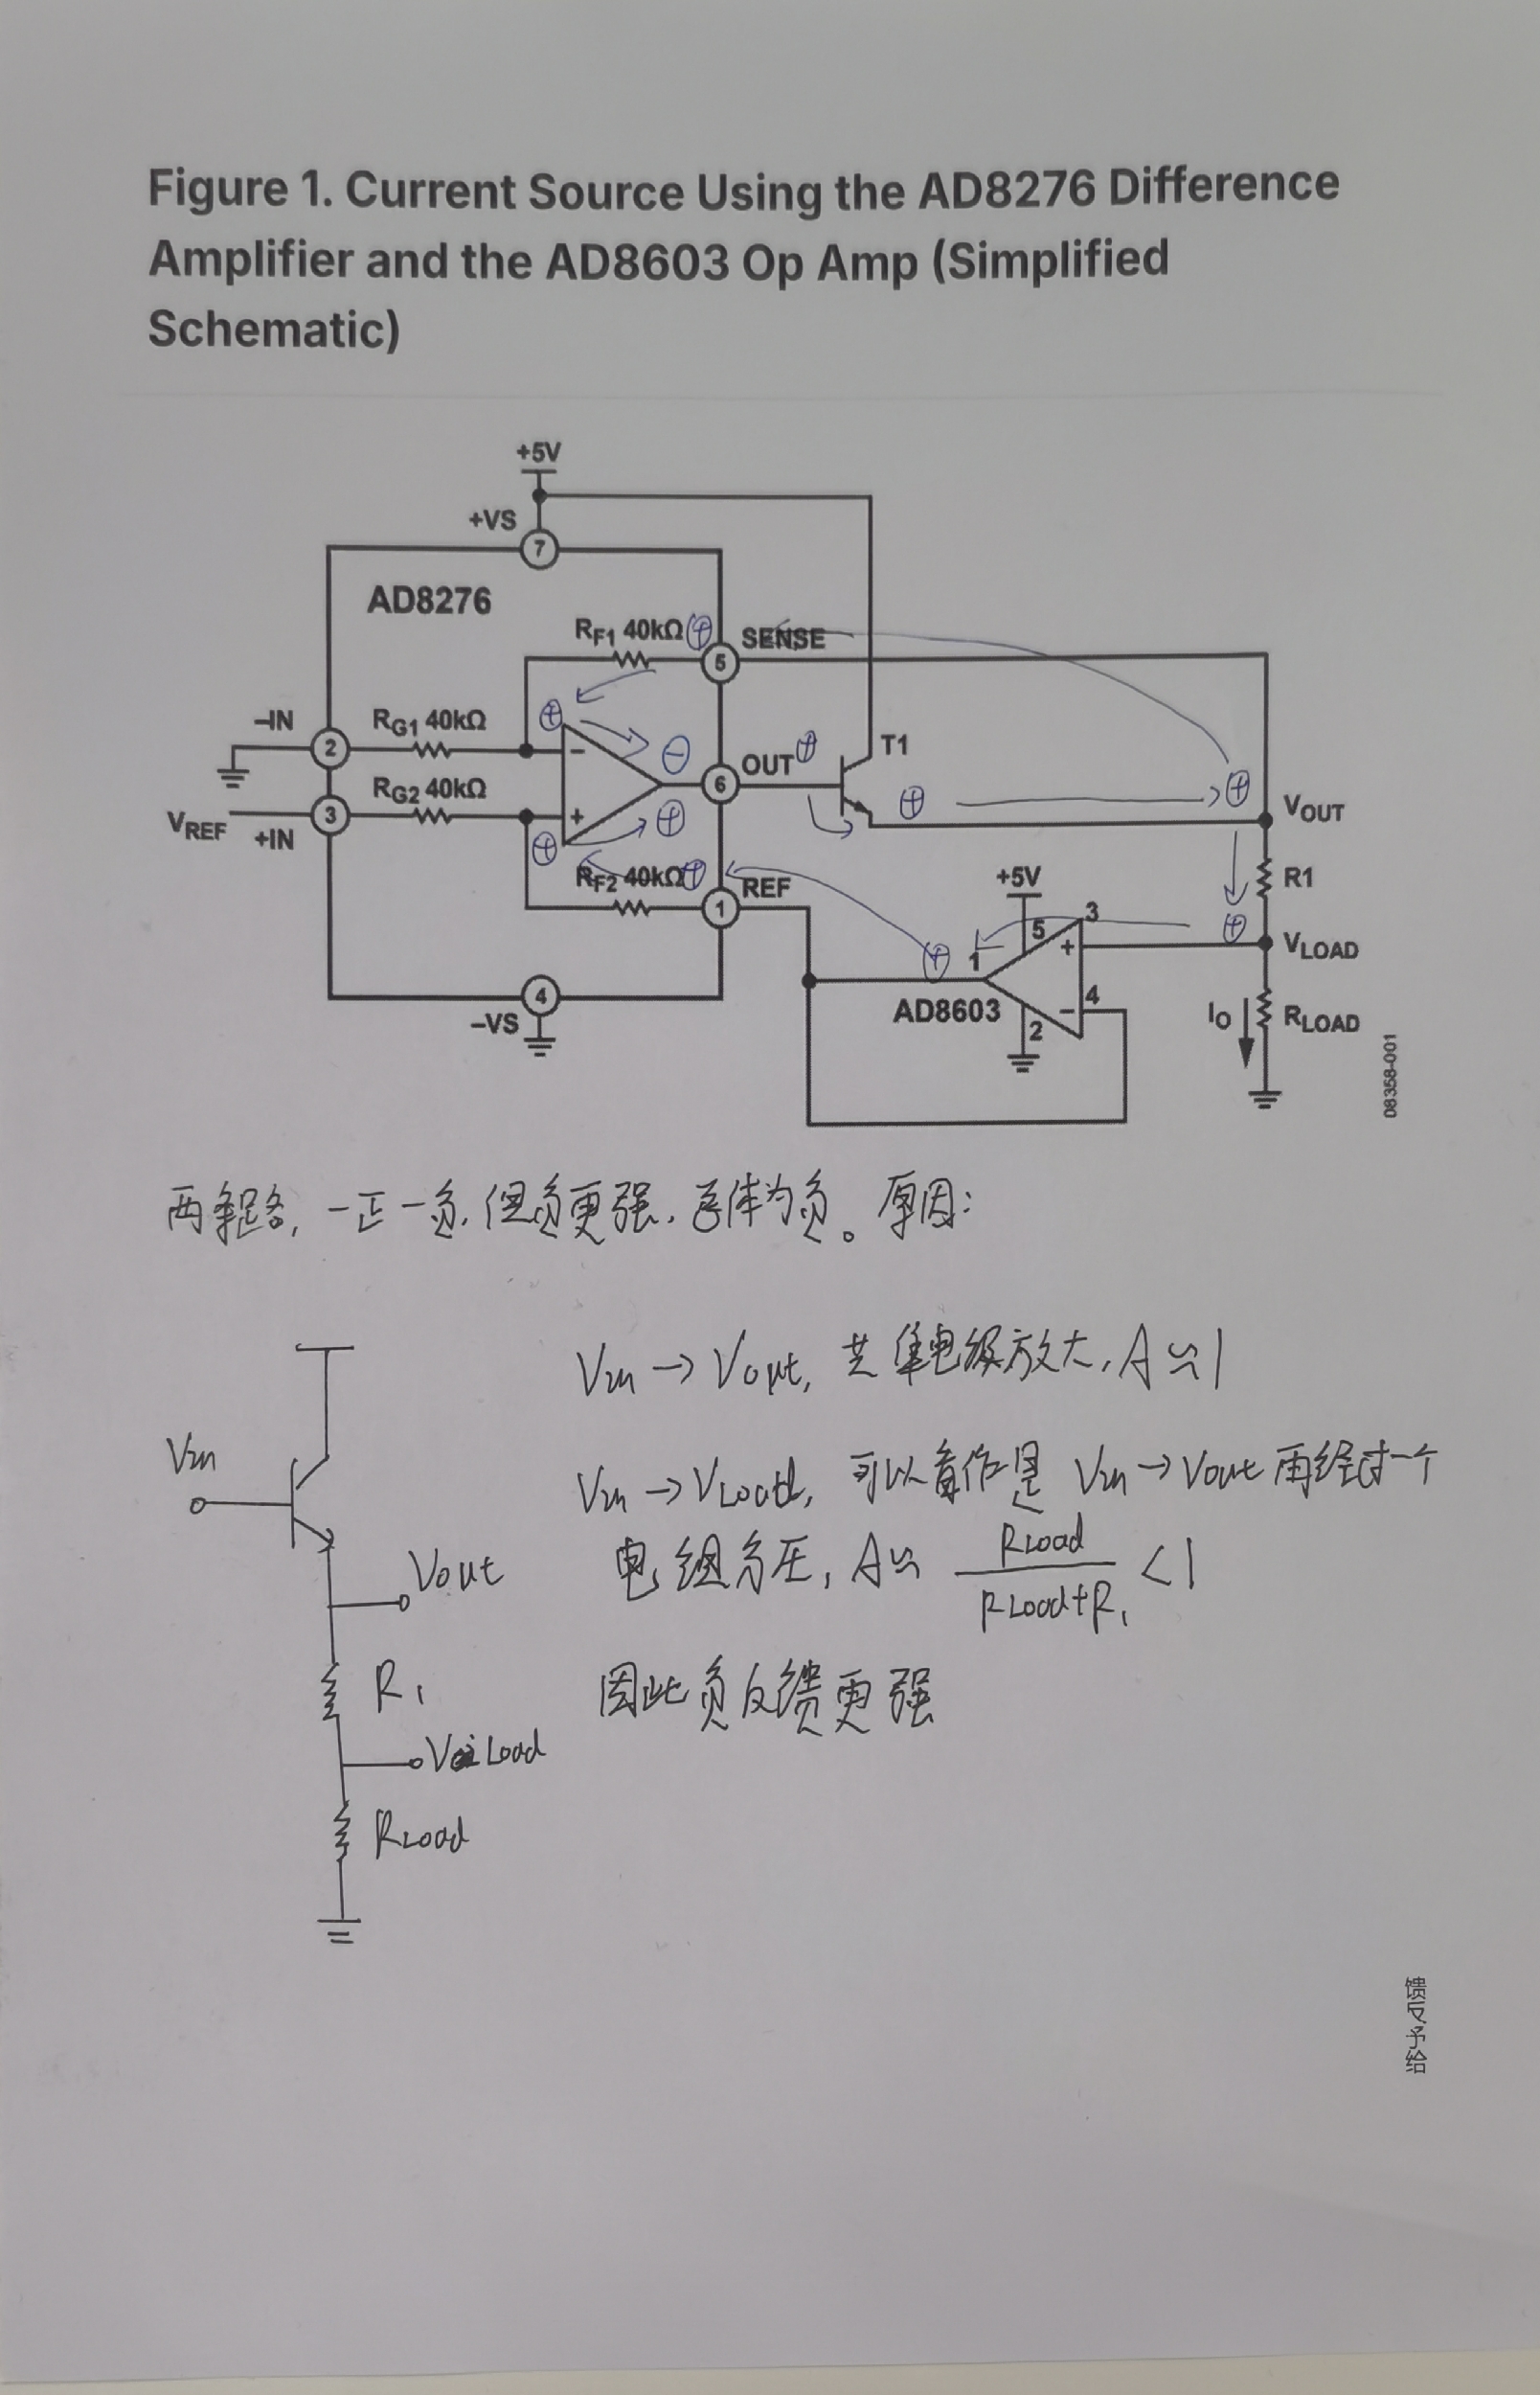 Figure 1. Current Source Using the AD8276 Difference
Amplifier and the AD8603 Op Amp (Simplified
Schematic)
+5V
+VS
7
AD8276
RF1 40kΩ
⊕
SENSE
5
-IN
2
RG1 40kΩ
⊕
−
⊖
OUT
⊕
T1
6
RG2 40kΩ
VREF
+IN
3
+
⊕
⊕
⊕
⊕
VOUT
RF2 40kΩ
⊕
REF
1
+5V
R1
3
5
+
⊕
VLOAD
⊕
1
AD8603
4
−
2
IO
RLOAD
4
-VS
08358-001
两条路,一正一负,但负更强,总体为负。原因:
Vin → Vout, 共集电极放大, A≈1
Vin → VLoad, 可以看作是 Vin → Vout 再经过一个
电组分压, A≈ RLoad / RLoad+R1 <1
因此负反馈更强
Vin
Vout
R1
VLoad
RLoad
馈反予给